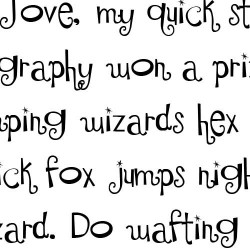 Jove, my quick st
graphy won a pri
ping wizards hex
ck fox jumps nigh
ard. Do wafting